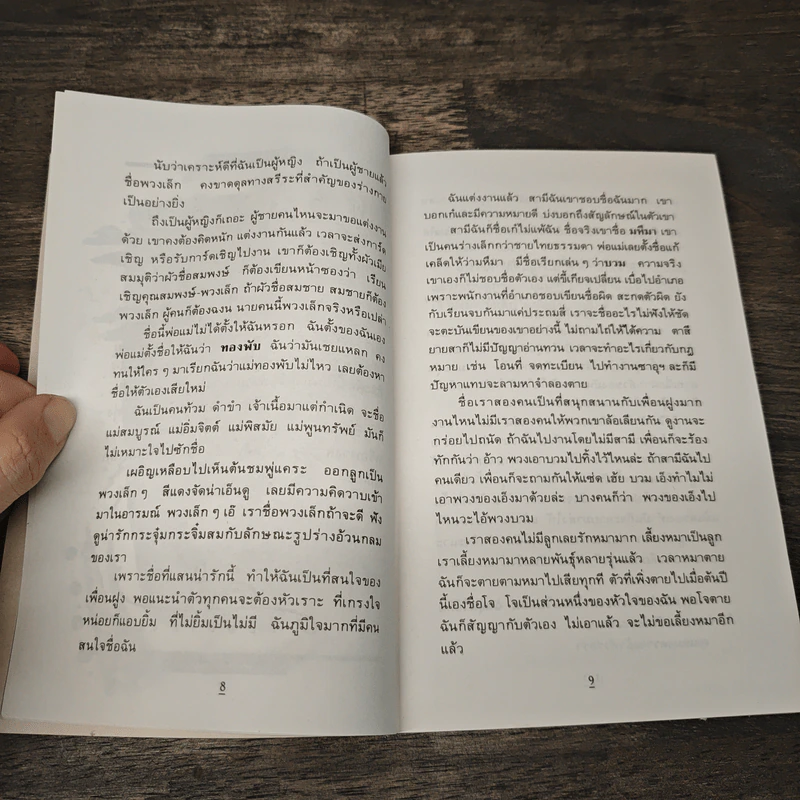 นับว่าเคราะห์ดีที่ฉันเป็นผู้หญิง ถ้าเป็นผู้ชายแล้ว
ชื่อพวงเล็ก คงขาดดุลทางสรีระที่สำคัญของร่างกาย
เป็นอย่างยิ่ง
ถึงเป็นผู้หญิงก็เถอะ ผู้ชายคนไหนจะมาขอแต่งงาน
ด้วย เขาคงต้องคิดหนัก แต่งงานกันแล้ว เวลาจะส่งการ์ด
เชิญ หรือรับการ์ดเชิญไปงาน เขาก็ต้องเชิญทั้งผัวเมีย
สมมุติว่าผัวชื่อสมพงษ์ ก็ต้องเขียนหน้าซองว่า เรียน
เชิญคุณสมพงษ์-พวงเล็ก ถ้าผัวชื่อสมชาย สมชายก็ต้อง
พวงเล็ก ผู้คนก็ต้องฉงน นายคนนี้พวงเล็กจริงหรือเปล่า
ชื่อนี้พ่อแม่ไม่ได้ตั้งให้ฉันหรอก ฉันตั้งของฉันเอง
พ่อแม่ตั้งชื่อให้ฉันว่า ทองพับ ฉันว่ามันเชยแหลก คง
ทนให้ใคร ๆ มาเรียกฉันว่าแม่ทองพับไม่ไหว เลยต้องหา
ชื่อให้ตัวเองเสียใหม่
ฉันเป็นคนท้วม ดำขำ เจ้าเนื้อมาแต่กำเนิด จะชื่อ
แม่สมบูรณ์ แม่อิ่มจิตต์ แม่พิสมัย แม่พูนทรัพย์ มันก็
ไม่เหมาะใจไปซักชื่อ
เผอิญเหลือบไปเห็นต้นชมพู่แคระ ออกลูกเป็น
พวงเล็ก ๆ สีแดงจัดน่าเอ็นดู เลยมีความคิดวาบเข้า
มาในอารมณ์ พวงเล็ก ๆ เอ๊ เราชื่อพวงเล็กถ้าจะดี ฟัง
ดูน่ารักกระจุ๋มกระจิ๋มสมกับลักษณะรูปร่างอ้วนกลม
ของเรา
เพราะชื่อที่แสนน่ารักนี้ ทำให้ฉันเป็นที่สนใจของ
เพื่อนฝูง พอแนะนำตัวทุกคนจะต้องหัวเราะ ที่เกรงใจ
หน่อยก็แอบยิ้ม ที่ไม่ยิ้มเป็นไม่มี ฉันภูมิใจมากที่มีคน
สนใจชื่อฉัน
8
ฉันแต่งงานแล้ว สามีฉันเขาชอบชื่อฉันมาก เขา
บอกเก๋และมีความหมายดี บ่งบอกถึงสัญลักษณ์ในตัวเขา
สามีฉันก็ชื่อเก๋ไม่แพ้ฉัน ชื่อจริงเขาชื่อ มหึมา เขา
เป็นคนร่างเล็กกว่าชายไทยธรรมดา พ่อแม่เลยตั้งชื่อแก้
เคล็ดให้ว่ามหึมา มีชื่อเรียกเล่น ๆ ว่าบวม ความจริง
เขาเองก็ไม่ชอบชื่อตัวเอง แต่ขี้เกียจเปลี่ยน เบื่อไปอำเภอ
เพราะพนักงานที่อำเภอชอบเขียนชื่อผิด สะกดตัวผิด ยัง
กับเรียนจบกันมาแค่ประถมสี่ เราจะชื่ออะไรไม่ฟังให้ชัด
จะตะบันเขียนของเขาอย่างนี้ ไม่ถามไถ่ให้ได้ความ ตาสี
ยายสาก็ไม่มีปัญญาอ่านทวน เวลาจะทำอะไรเกี่ยวกับกฎ
หมาย เช่น โอนที่ จดทะเบียน ไปทำงานซาอุฯ ละก็มี
ปัญหาแทบจะลามหาจำลองตาย
ชื่อเราสองคนเป็นที่สนุกสนานกับเพื่อนฝูงมาก
งานไหนไม่มีเราสองคนให้พวกเขาล้อเลียนกัน ดูงานจะ
กร่อยไปถนัด ถ้าฉันไปงานโดยไม่มีสามี เพื่อนก็จะร้อง
ทักกันว่า อ้าว พวงเอาบวมไปทิ้งไว้ไหนล่ะ ถ้าสามีฉันไป
คนเดียว เพื่อนก็จะถามกันให้แซ่ด เฮ้ย บวม เอ็งทำไมไม่
เอาพวงของเอ็งมาด้วยล่ะ บางคนก็ว่า พวงของเอ็งไป
ไหนวะไอ้พวงบวม
เราสองคนไม่มีลูกเลยรักหมามาก เลี้ยงหมาเป็นลูก
เราเลี้ยงหมามาหลายพันธุ์หลายรุ่นแล้ว เวลาหมาตาย
ฉันก็จะตายตามหมาไปเสียทุกที ตัวที่เพิ่งตายไปเมื่อต้นปี
นี้เองชื่อโจ โจเป็นส่วนหนึ่งของหัวใจของฉัน พอโจตาย
ฉันก็สัญญากับตัวเอง ไม่เอาแล้ว จะไม่ขอเลี้ยงหมาอีก
แล้ว
9